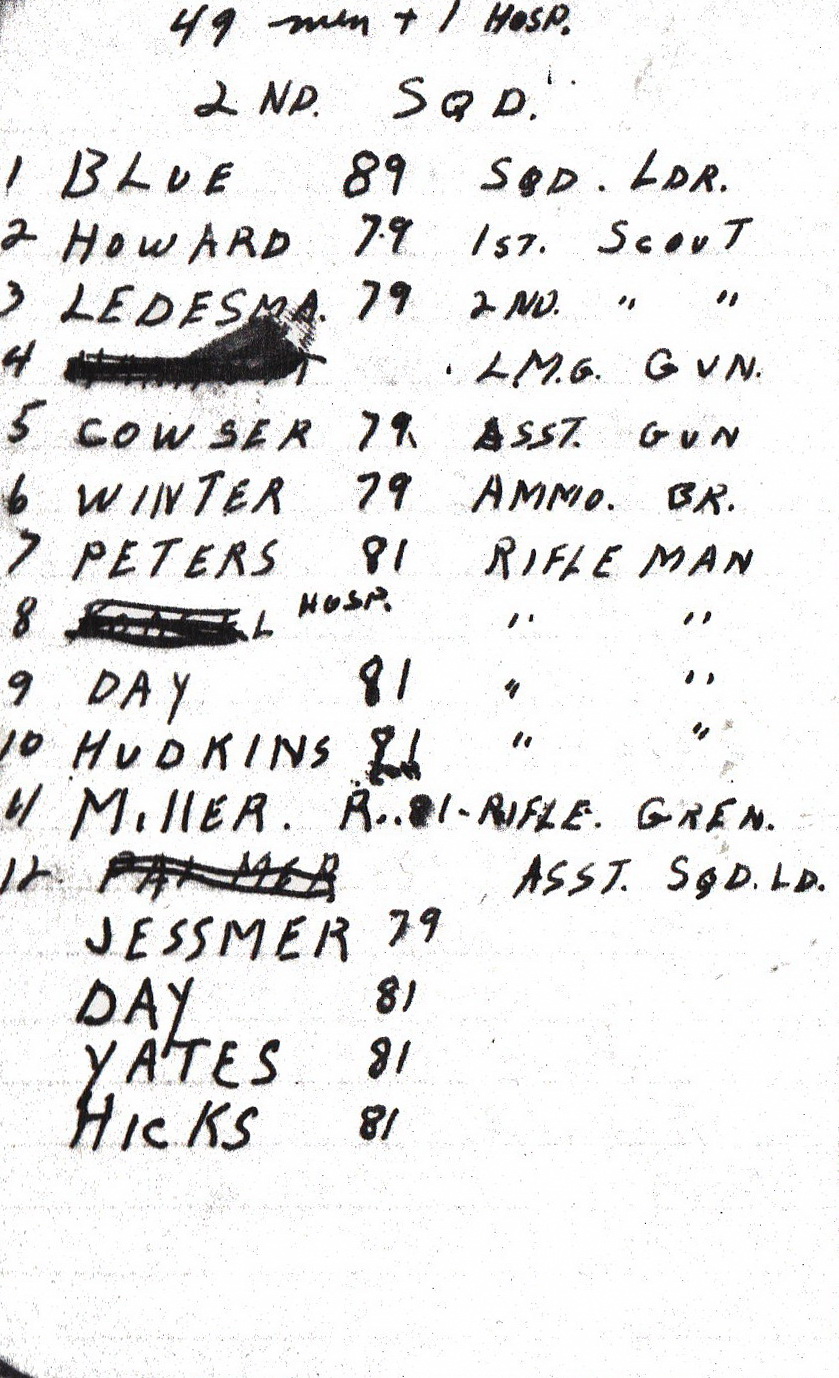 49 men + 1 HOSP.
2 ND. SQD.
1 BLUE 89 SQD. LDR.
2 HOWARD 79 1ST. SCOUT
3 LEDESMA. 79 2ND. " "
4 L.M.G. GUN.
5 COWSER 79 ASST. GUN
6 WINTER 79 AMMO. BR.
7 PETERS 81 RIFLE MAN
8 HOSP. " "
9 DAY 81 " "
10 HUDKINS 81 " "
11 MillER. R..81-RIFLE. GREN.
12 PALMER ASST. SQD. LD.
JESSMER 79
DAY 81
YATES 81
HICKS 81